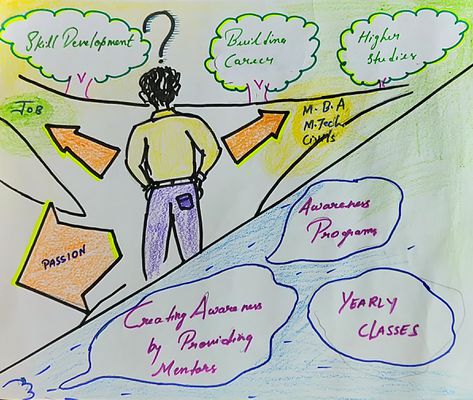 Skill Development
?
Building
Career
Higher
Studies
JOB
M.B.A
M.Tech
Civils
PASSION
Awareness
Programs
Creating Awareness
by Providing
Mentors
YEARLY
CLASSES